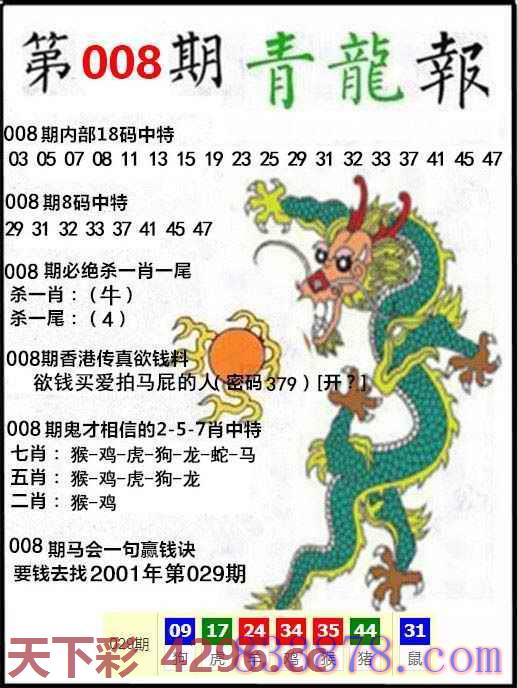 第008期青龍報
008期内部18码中特
03 05 07 08 11 13 15 19 23 25 29 31 32 33 37 41 45 47
008期8码中特
29 31 32 33 37 41 45 47
008期必绝杀一肖一尾
杀一肖：（牛）
杀一尾：（4）
008期香港传真欲钱料
欲钱买爱拍马屁的人（密码379）[开？]
008期鬼才相信的2-5-7肖中特
七肖：猴-鸡-虎-狗-龙-蛇-马
五肖：猴-鸡-虎-狗-龙
二肖：猴-鸡
008期马会一句赢钱诀
要钱去找2001年第029期
029期 09 17 24 34 35 44 31
狗 虎 羊 鸡 猴 猪 鼠
天下彩 4296.cc